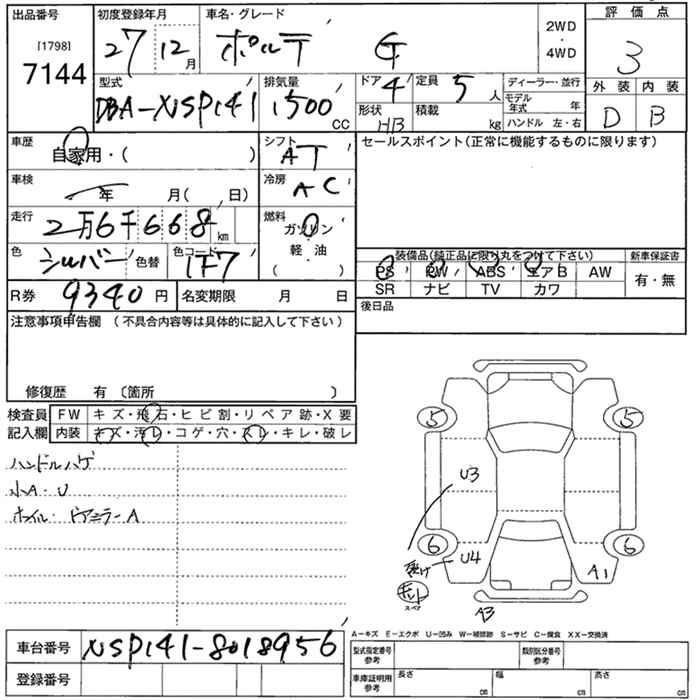 出品番号 初度登録年月 車名・グレード 2WD・4WD 評価点
[1798]
7144 27 12月 ポルテ G 3
型式 排気量 ドア 4 定員 5人 ディーラー・並行 外装 内装
DBA-NSP141 1500 CC 形状 HB 積載 kg モデル年式 年 D B
ハンドル 左・右
車歴 自家用・( ) シフト AT セールスポイント(正常に機能するものに限ります)
車検 年 月( 日) 冷房 AC
走行 2万6千668km 燃料 ガソリン・軽油
( )
色 シルバー 色替 色コード 1F7 装備品(純正品に限り丸をつけて下さい) 新車保証書
PS PW ABS エアB AW 有・無
R券 9340円 名変期限 月 日 SR ナビ TV カワ
注意事項申告欄 (不具合内容等は具体的に記入して下さい) 後日品
修復歴 有 〔箇所 〕
検査員 FW キズ・飛石・ヒビ割・リペア跡・X要
記入欄 内装 キズ・汚レ・コゲ・穴・スレ・キレ・破レ
ハンドルハゲ
小A・U
ホイル・ドアミラーA
5 5
U3
6 U4 6
A1
キット
スペア
A3
車台番号 NSP141-8018956
登録番号
A-キズ E-エクボ U-凹み W-補修跡 S-サビ C-腐食 XX-交換済
型式指定番号 参考 類別区分番号 参考
車庫証明用 参考 長さ cm 幅 cm 高さ cm